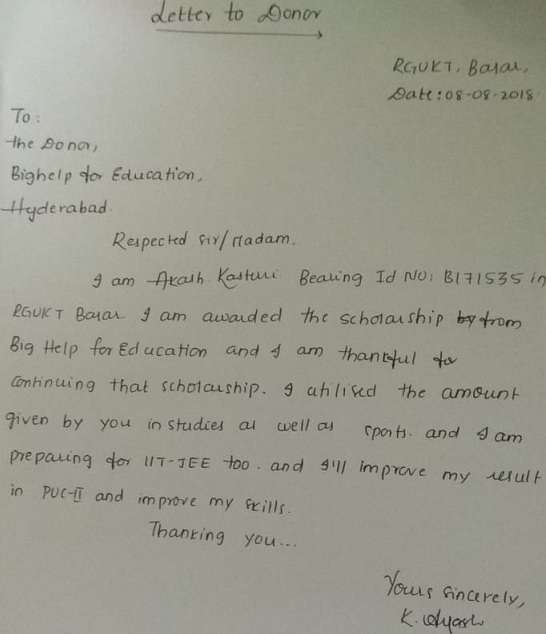 Letter to Donor
RGUKT, Basar,
Date: 08-08-2018
To:
the Donor,
Bighelp for Education,
Hyderabad.
Respected sir/Madam.
I am Akash Kasturi Bearing Id NO: B171535 in
RGUKT Basar I am awarded the scholarship by from
Big Help for Education and I am thankful for
continuing that scholarship. I utilised the amount
given by you in studies as well as sports. and I am
preparing for IIT-JEE too. and I'll improve my result
in PUC-II and improve my skills.
Thanking you...
Yours sincerely,
K.